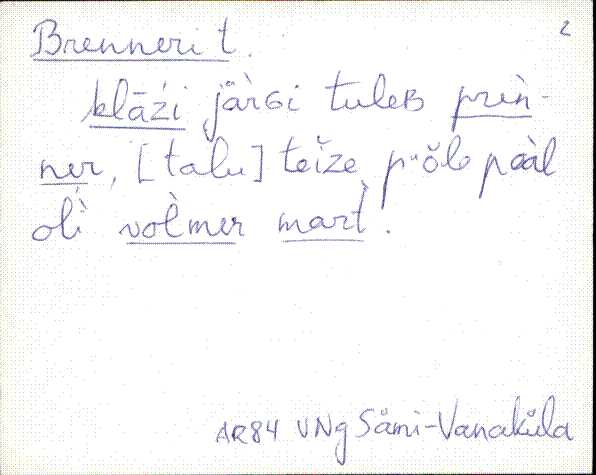 Brenneri t. 2
klāźi jäŕGi tuleB prèǹ-
ner, [talu] teĭze pŏle pääl
oĺì vòlmer màrt̀.
AR84 VNg Sämi-Vanaküla